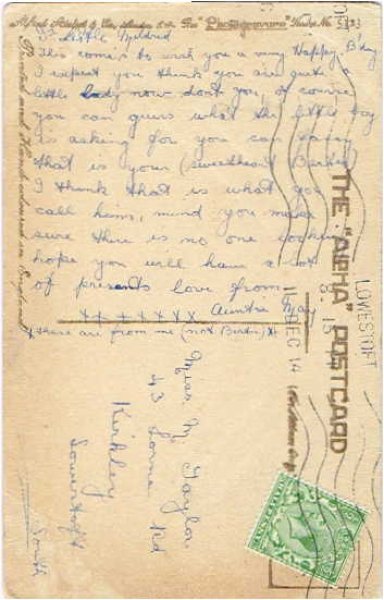 D. Little Mildred
This comes to wish you a very Happy B'day
I expect you think you are quite a
little lady now dont you, of course
you can guess what the little boy
is asking for you can fancy
that is your (sweetheart Bertie)
I think that is what you
call him, mind you make
sure there is no one looking
hope you will have a lot
of presents love from
Auntie May
x x x x x x x
(these are from me (not Bertie) x
Miss M. Taylor
43 Lorne Rd
Kirkley
Lowestoft
South
THE "ALPHA" POSTCARD
LOWESTOFT
DEC 14
Printed and Hand-coloured in England